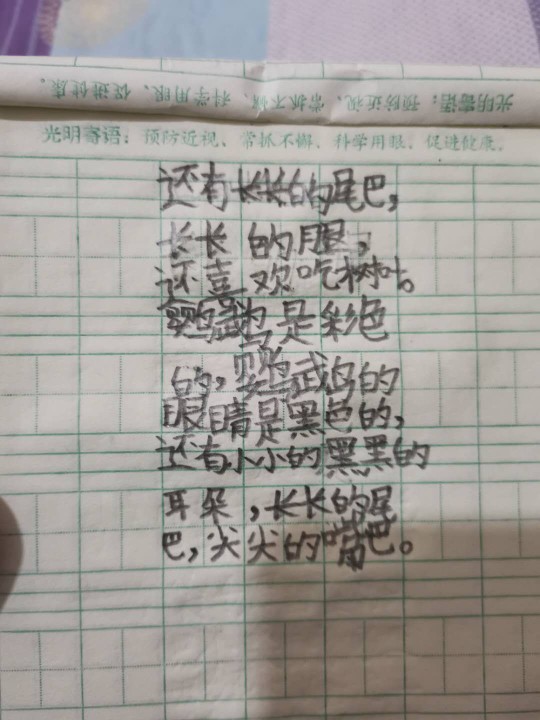 光明寄语：预防近视、常抓不懈、科学用眼、促进健康。
光明寄语：预防近视、常抓不懈、科学用眼、促进健康。
还有长长的尾巴，
长长的腿，
还喜欢吃树叶。
鹦鹉是彩色
的，鹦鹉的
眼睛是黑色的，
还有小小的黑黑的
耳朵，长长的尾
巴，尖尖的嘴巴。